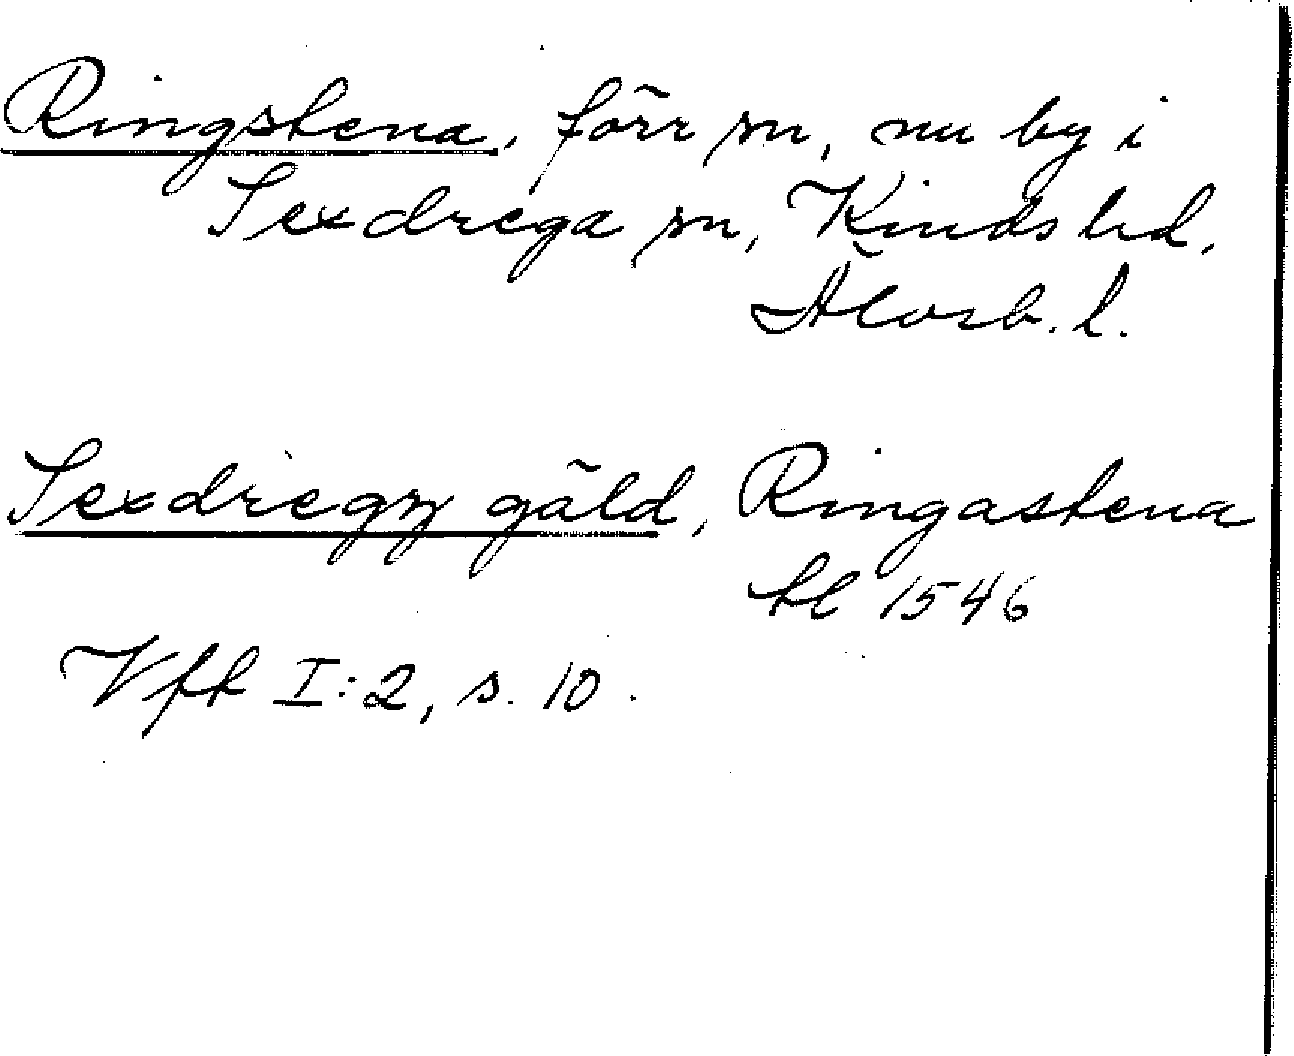 Ringstena, förr sn, nu by i
Sexdrega sn, Kinds hd,
Älvsb. l.
Sexdregz gäld, Ringastena
kl 1546
Vftk I:2, s. 10.